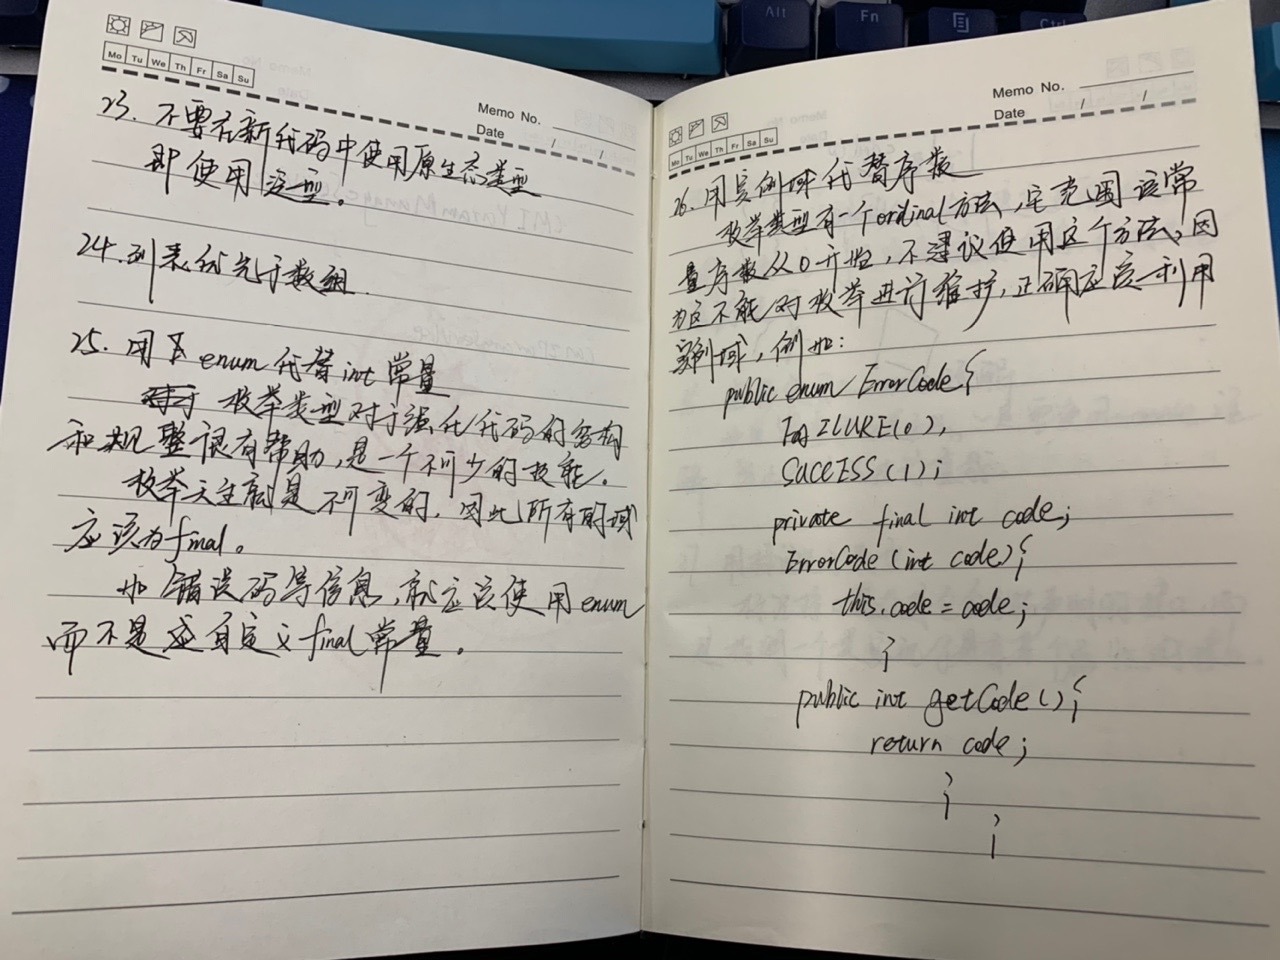 Mo Tu We Th Fr Sa Su
Memo No.
Date / /
23. 不要在新代码中使用原生态类型
即使用泛型。
24. 列表优先于数组.
25. 用 enum 代替int 常量
枚举类型对于强化代码的结构
和规整很有帮助,是一个不可少的技能。
枚举天生就是不可变的,因此所有的域
应该为final。
如错误码等信息,就应该使用 enum
而不是去自定义final常量。
Mo Tu We Th Fr Sa Su
Memo No.
Date / /
26. 用实例域代替序数
枚举类型有一个ordinal方法,它范围该常
量序数从0开始,不建议使用这个方法,因
为这不能对枚举进行维护,正确应该利用
实例域,例如:
public enum ErrorCode{
FAILURE(0),
SUCCESS(1);
private final int code;
ErrorCode(int code){
this.code = code;
}
public int getCode(){
return code;
}
}
Alt
Fn
Ctrl